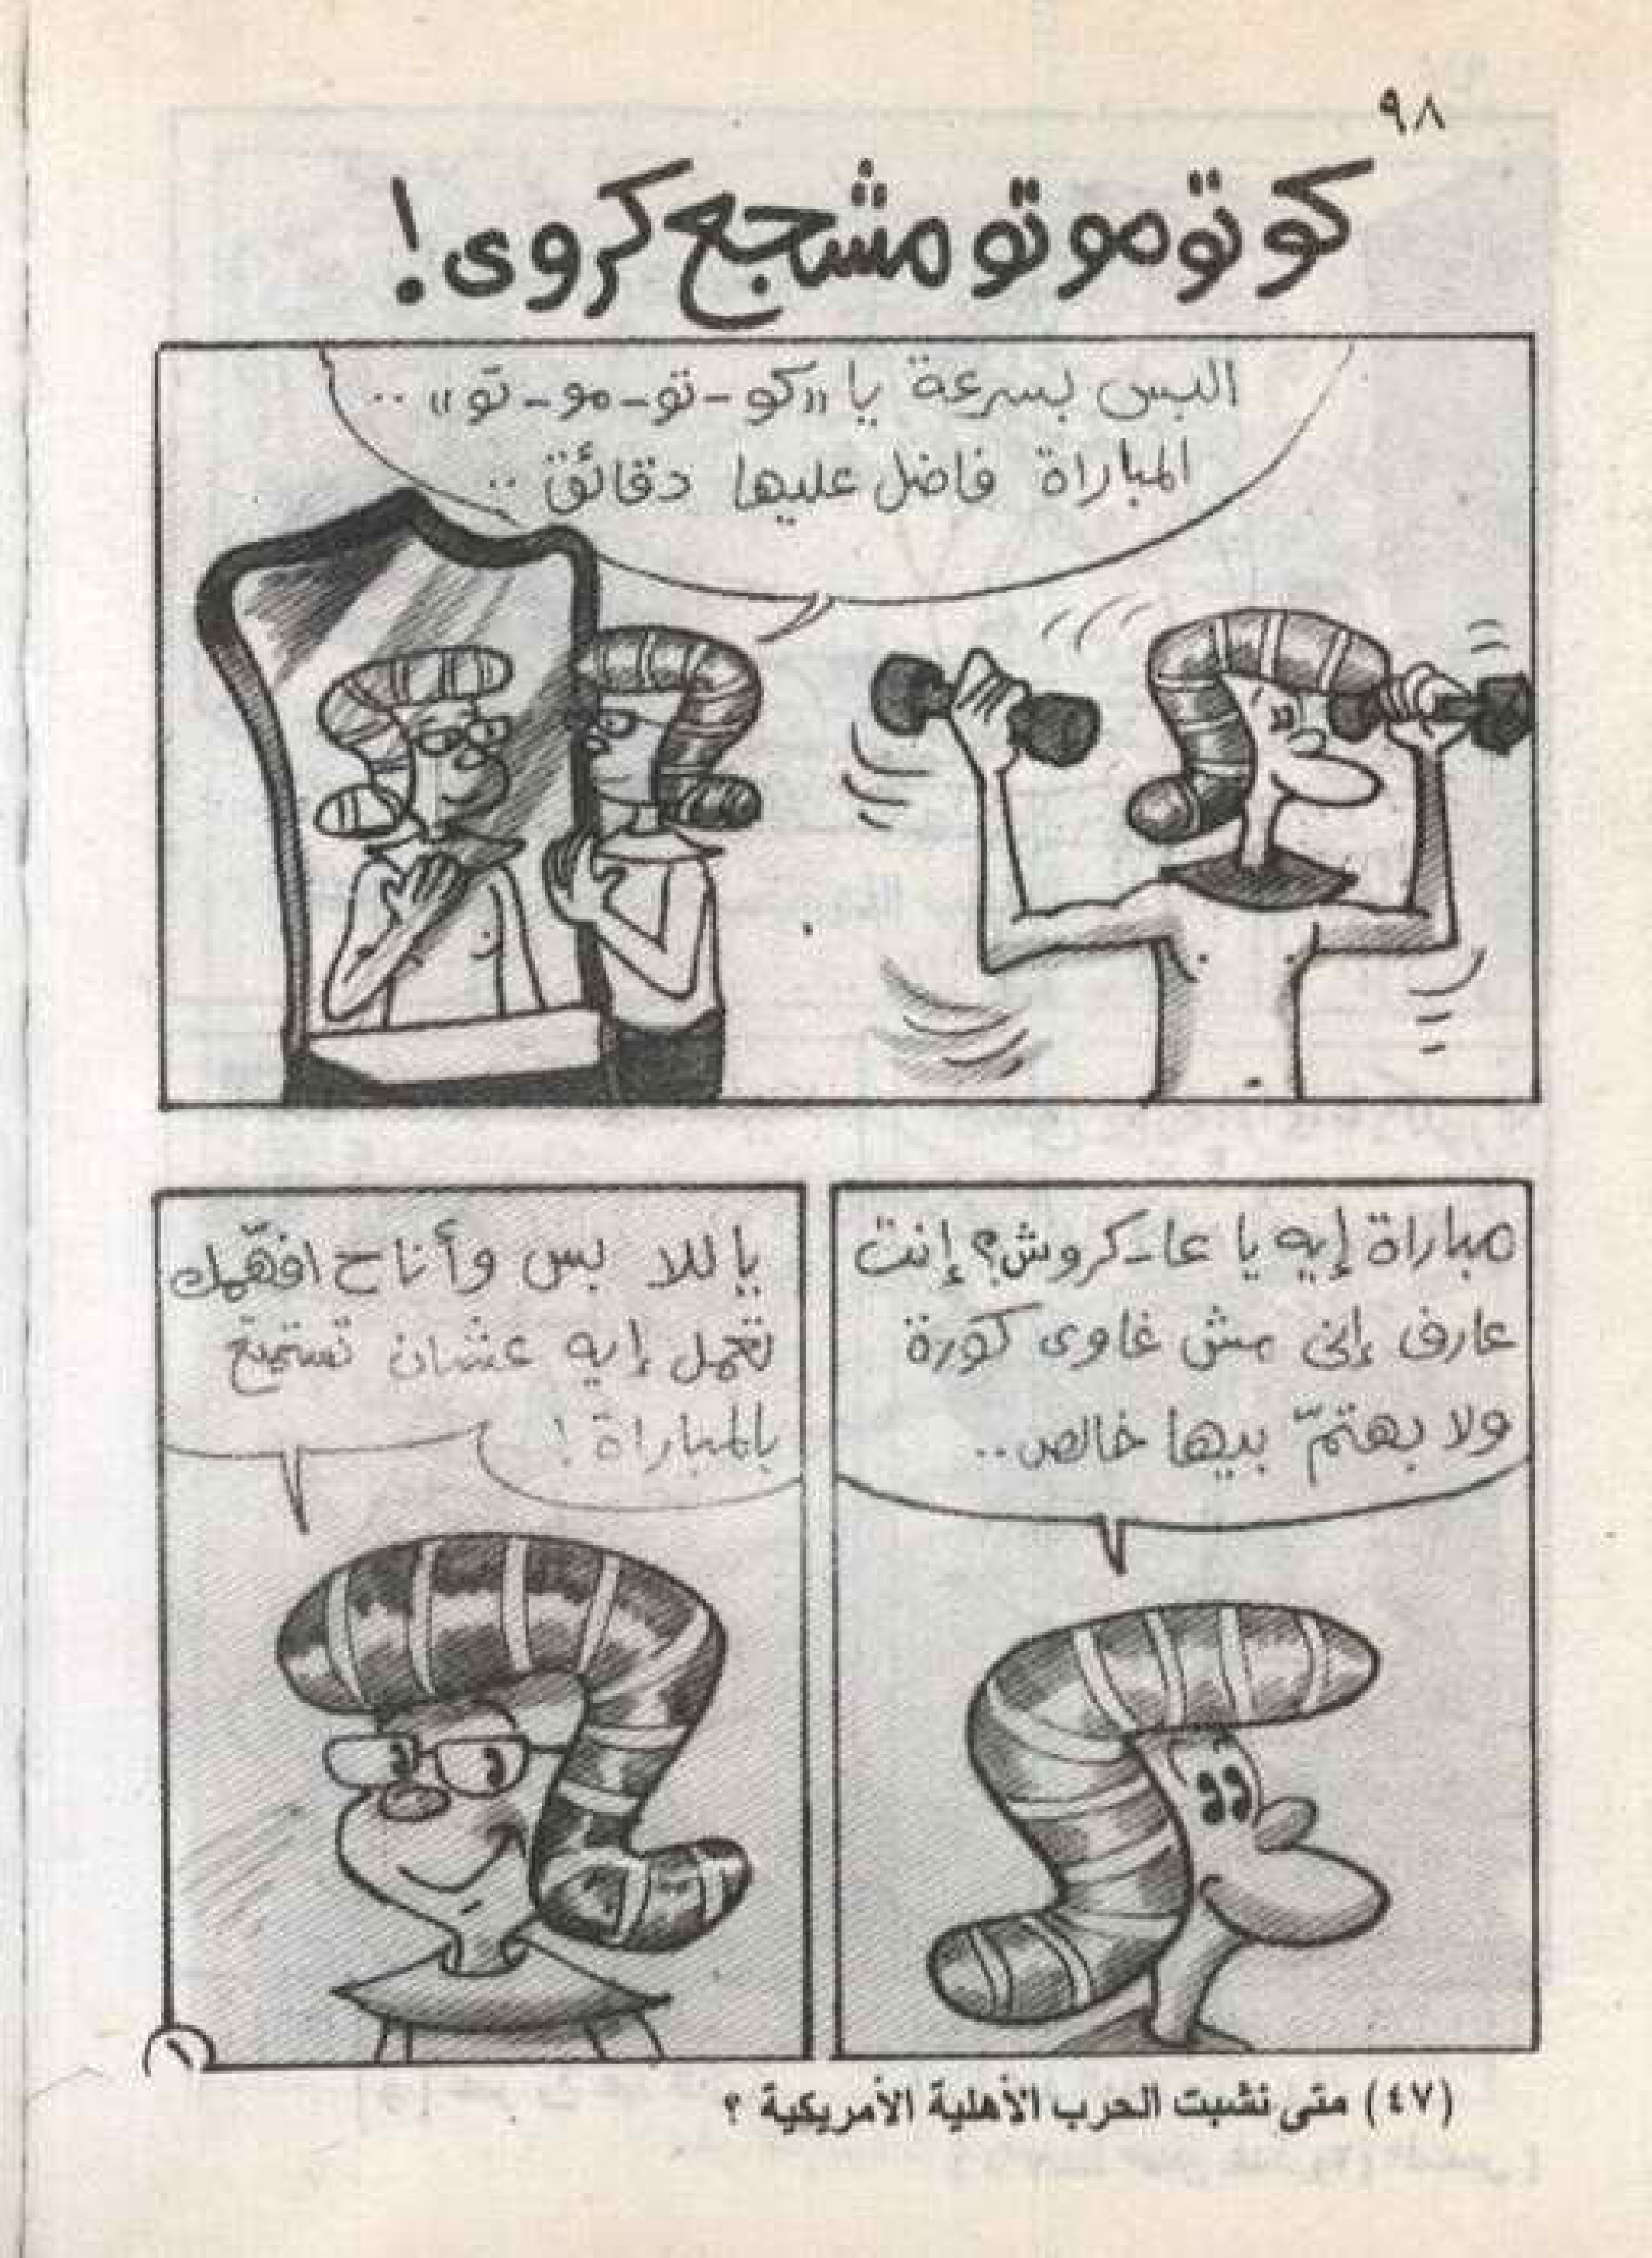 ٩٨
كوتوموتو مشجع كروى!
البس بسرعة يا «كو-تو-مو-تو» ..
المباراة فاضل عليها دقائق ..
مباراة إيه يا عا-كروش؟ إنت
عارف إنى مش غاوى كورة
ولا بهتمّ بيها خالص..
ياللا بس وأنا ح افهّمك
تعمل إيه عشان تستمتع
بالمباراة !
١
(٤٧) متى نشبت الحرب الأهلية الأمريكية ؟